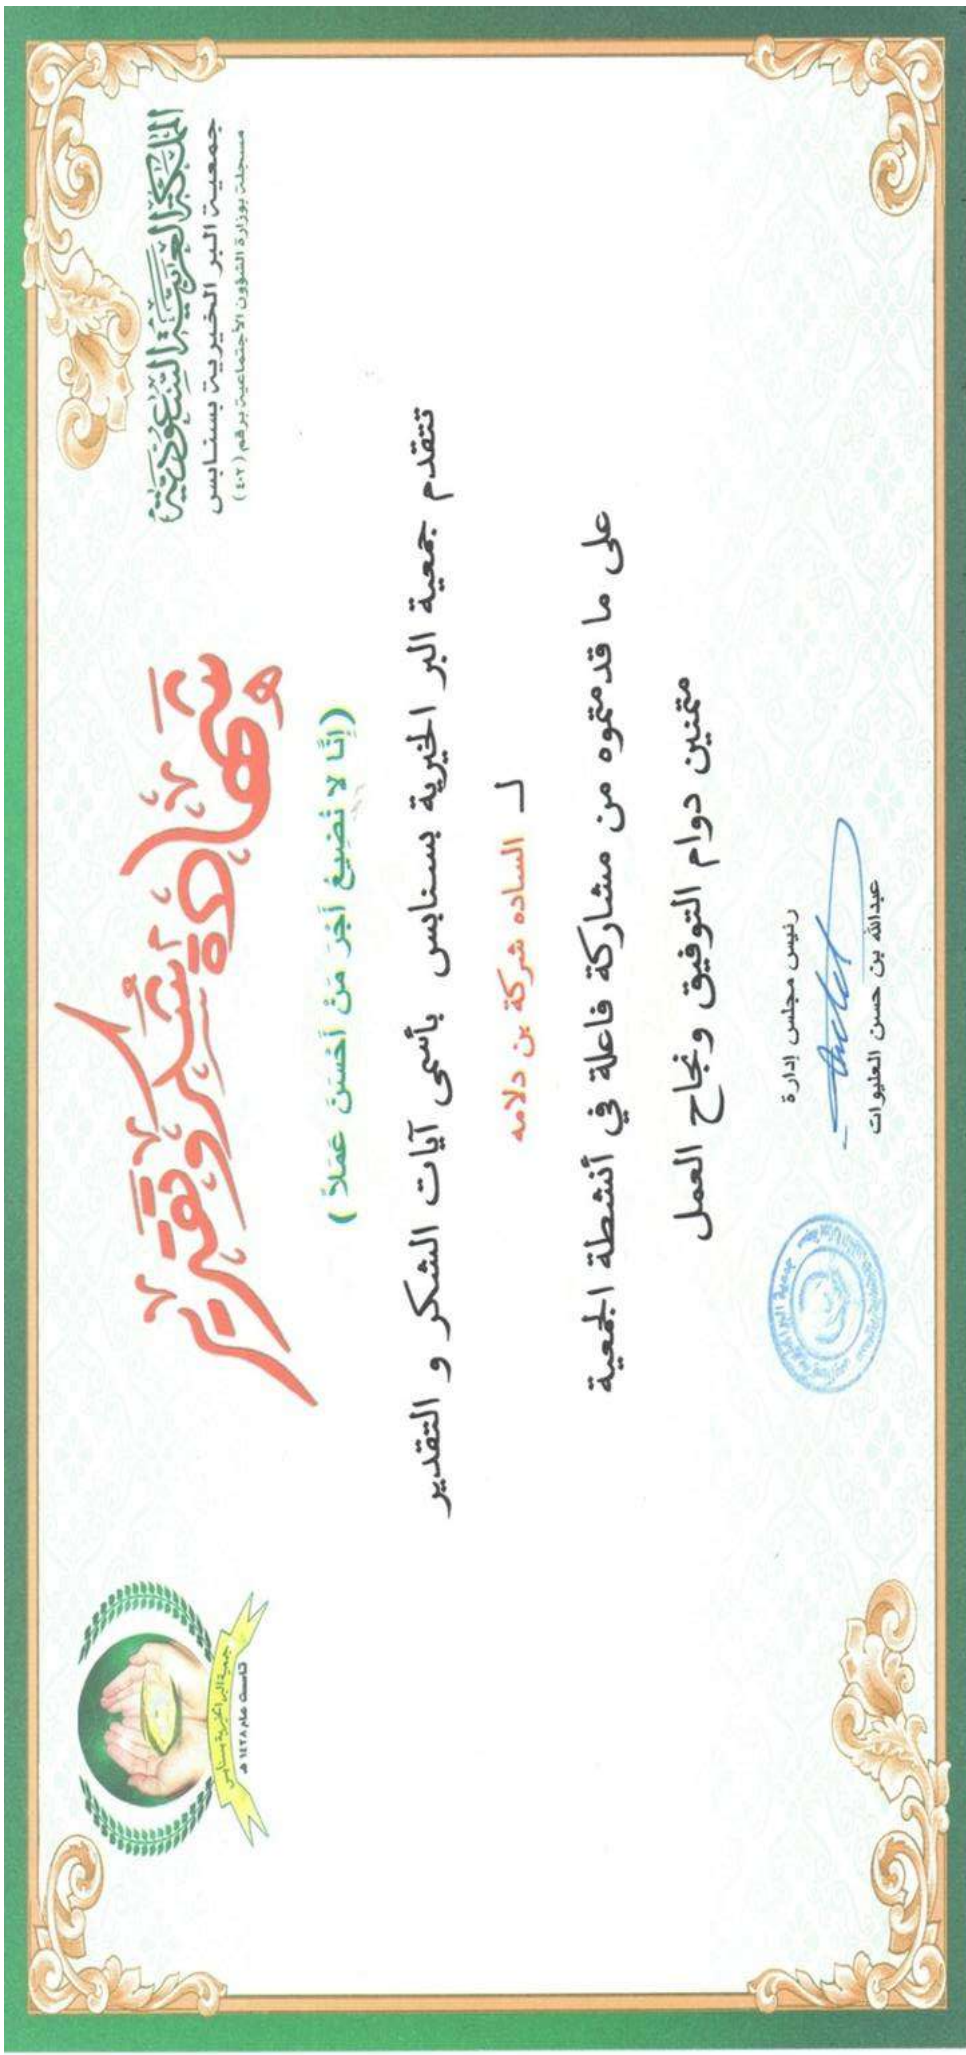 المملكة العربية السعودية
جمعية البر الخيرية بسنابس
مسجلة بوزارة الشؤون الأجتماعية برقم (٤٠٢)
جمعية البر الخيرية بسنابس
تأسست عام ١٤٢٨ هـ
شهادة شكر وتقدير
(إِنَّا لا نُضِيعُ أَجْرَ مَنْ أَحْسَنَ عَمَلاً )
تتقدم جمعية البر الخيرية بسنابس بأسمى آيات الشكر و التقدير
لـ الساده شركة بن دلامه
على ما قدمتموه من مشاركة فاعلة في أنشطة الجمعية
متمنين دوام التوفيق ونجاح العمل
رئيس مجلس إدارة
عبدالله بن حسن العليوات